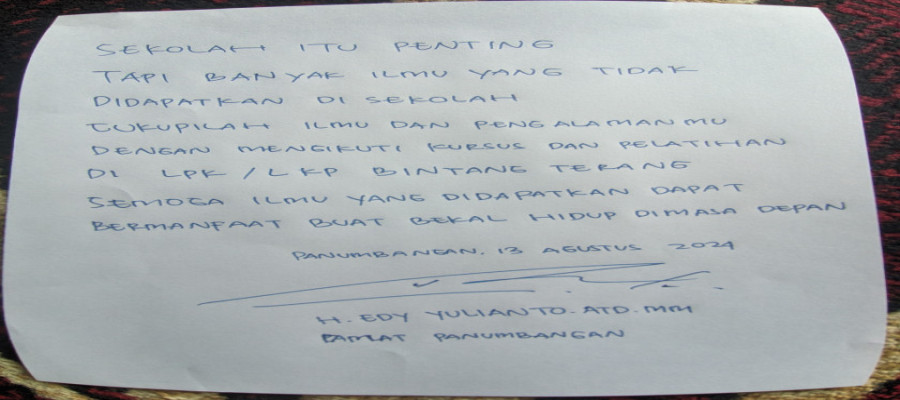 SEKOLAH ITU PENTING
TAPI BANYAK ILMU YANG TIDAK
DIDAPATKAN DI SEKOLAH
CUKUPILAH ILMU DAN PENGALAMANMU
DENGAN MENGIKUTI KURSUS DAN PELATIHAN
DI LPK / LKP BINTANG TERANG
SEMOGA ILMU YANG DIDAPATKAN DAPAT
BERMANFAAT BUAT BEKAL HIDUP DIMASA DEPAN
PANUMBANGAN. 13 AGUSTUS 2024
H. EDY YULIANTO. ATD. MM
CAMAT PANUMBANGAN